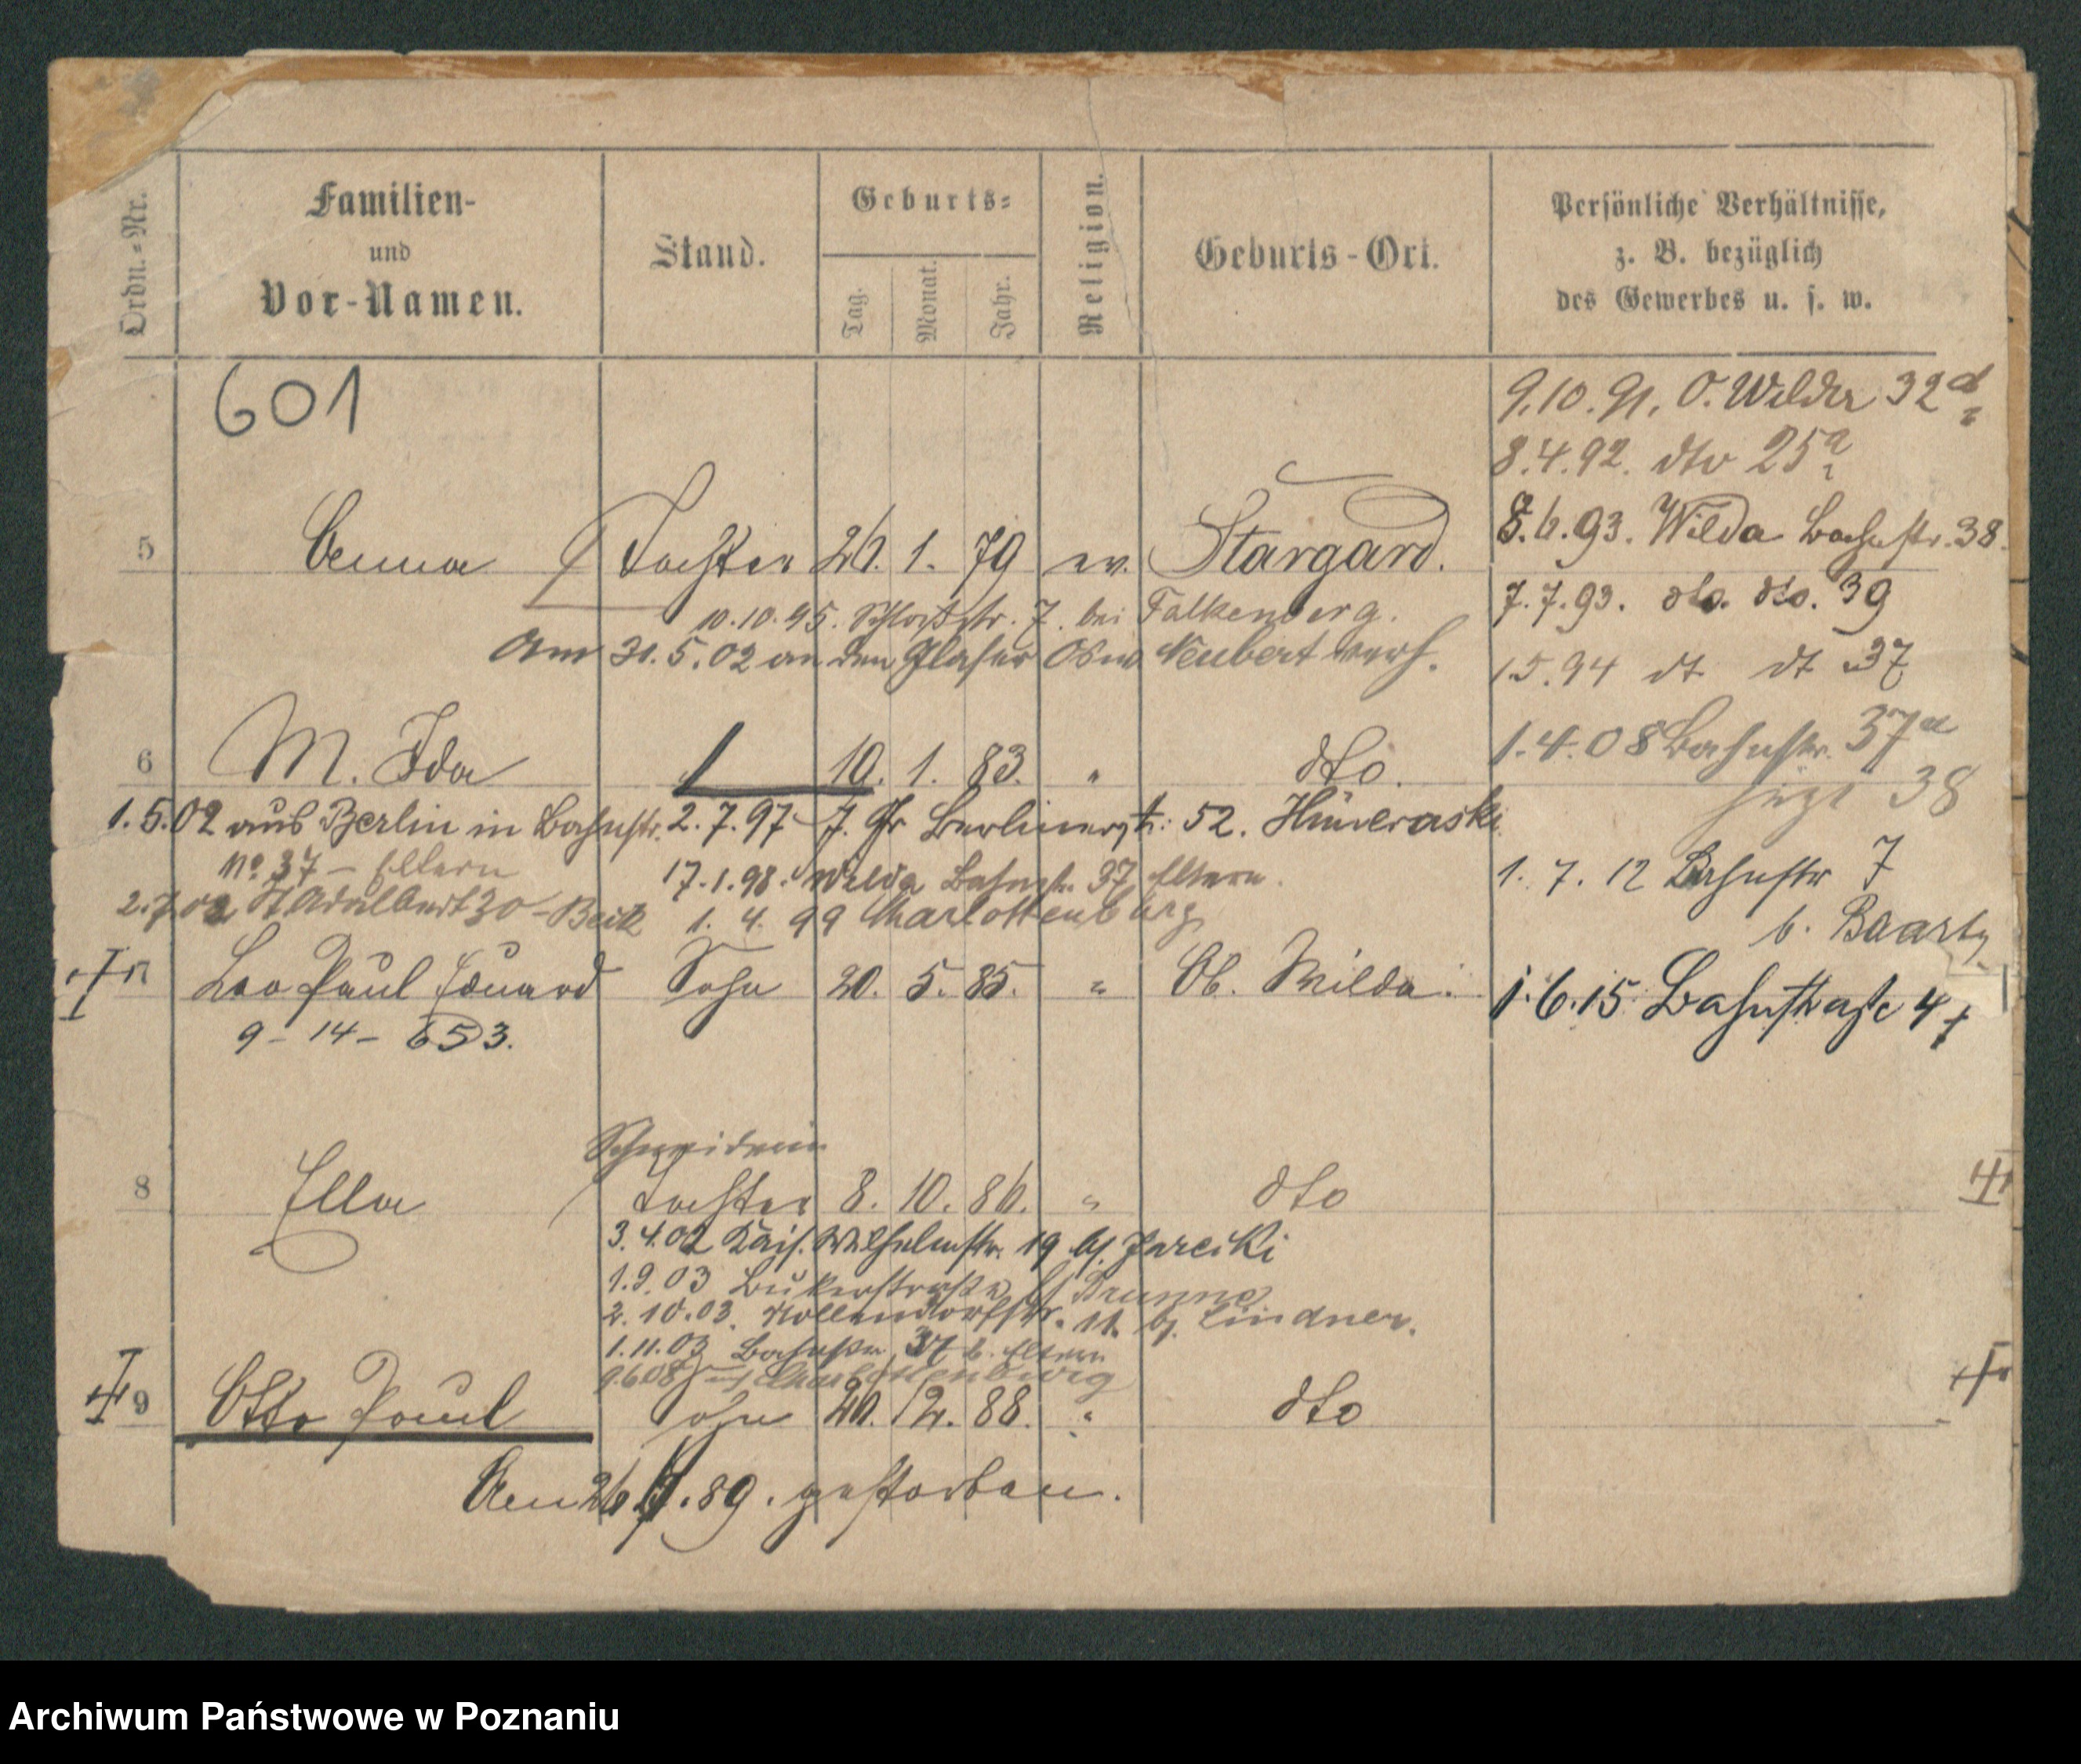 Ordn.-Nr.
Familien-
und
Vor-Namen.
Stand.
Geburts-
Tag.
Monat.
Jahr.
Religion.
Geburts-Ort.
Persönliche Verhältnisse,
z. B. bezüglich
des Gewerbes u. s. w.
601
9.10.91. O. Wilda 32
8.4.92. dto 25a
8.6.93. Wilda Bahnstr. 38.
5 Anna Tochter 26. 1. 79 ev. Stargard.
7.7.93. dto. dto. 39
10.10.95. Schloßstr. 7. bei Falkenberg.
Am 31.5.02 an den Glaser Neubert verh.
1.5.94 dt dt 37
6 M. Ida 10. 1. 83. " dto.
1.4.08 Bahnstr. 37a
jetzt 38
1.5.02 aus Berlin in Bahnstr.
No 37 – Eltern
2.7.02 St Adalbert 30 – Beck
2.7.97 Gr Berlinerstr: 52.
17.1.98. Wilda Bahnstr. 37 Eltern.
1. 4. 99 Charlottenburg
1. 7. 12 Bahnstr 7
b. Baartz
7 Leo Paul Eduard Sohn 20. 5. 85. " Ob. Wilda.
9 – 14 – 653.
1.6.15 Bahnstraße 4
Schneiderin
8 Ella Tochter 8. 10. 86. " dto
3.4.02 Kais. Wilhelmstr. 19 bj. Jarecki
1.9.03 Bukerstraße
2.10.03. Nollendorfstr. 11 bj. Lindner.
1.11.03 Bahnstr. 37 b. Eltern
9.6.08 Charlottenburg
9 Otto Paul Sohn 20. 12. 88. " dto
Am 26. .89. gestorben.
Archiwum Państwowe w Poznaniu